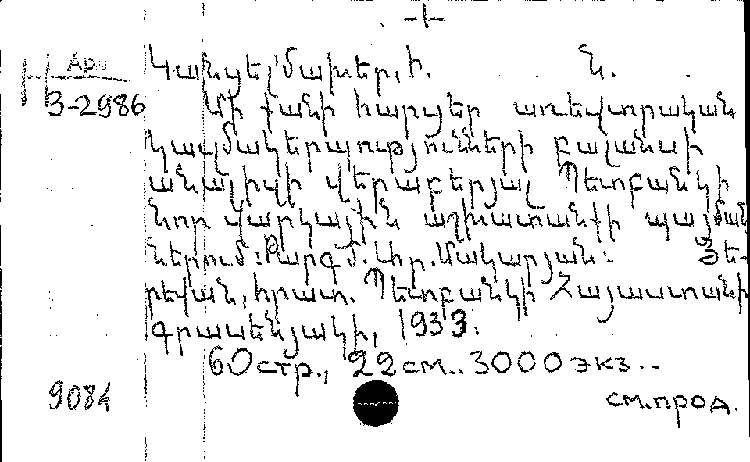 -I-
Арм
3-2986
Կանցելմախեր, Ի. Ն.
Մի քանի հարցեր առևտրական
կազմակերպությունների բալանսի
անալիզի վերաբերյալ Պետբանկի
նոր վարկային աշխատանքի պայման
ներում: Թարգմ. Մակարյան: Յե-
րևան, հրատ. Պետբանկի Հայաստանի
գրասենյակի, 1933.
60 стр., 22 см.. 3000 экз..
9084
см.прод.